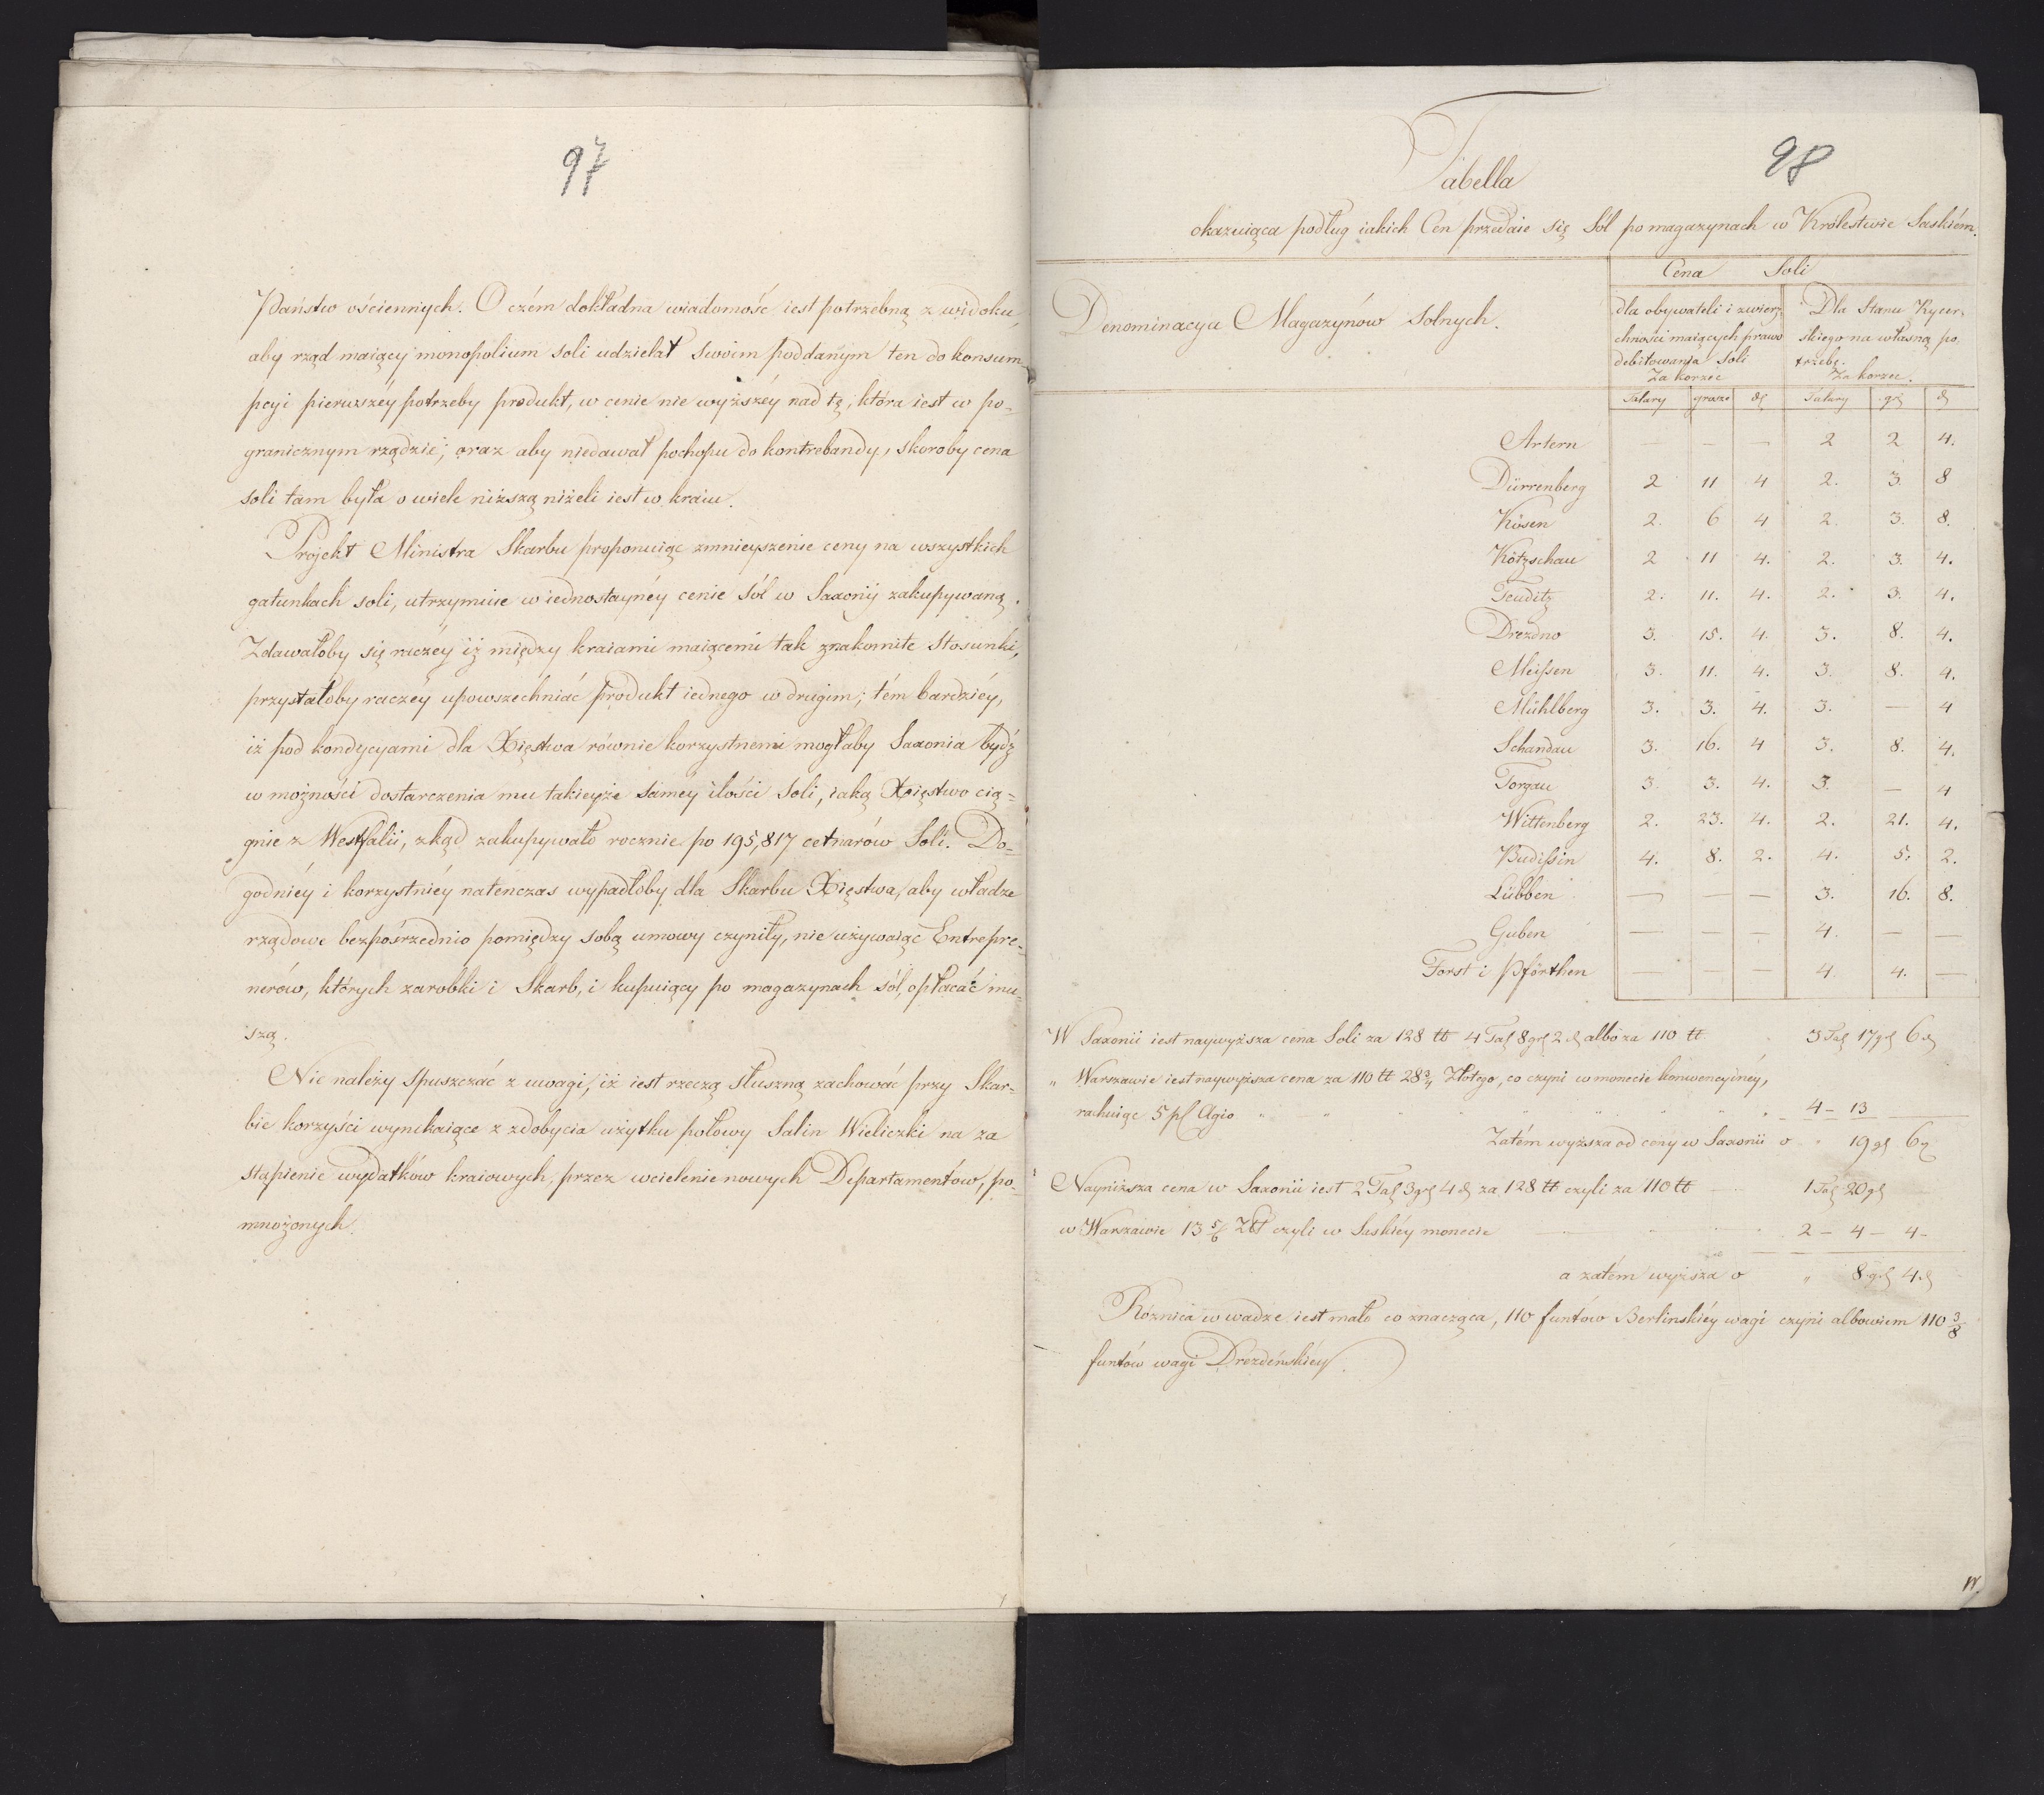 97
Państw ościennych. O czém dokładna wiadomość iest potrzebną z widoku,
aby rząd maiący monopolium soli udzielał swoim poddanym ten do konsum
pcyi pierwszéy potrzeby produkt, w cenie nie wyższéy nad tę, która iest w po-
granicznym rządzie; oraz aby niedawał pochopu do kontrebandy, skoroby cena
soli tam była o wiele niższą niżeli iest w kraiu.
Projekt Ministra Skarbu proponuiąc zmnieyszenie ceny na wszystkich
gatunkach soli, utrzymuie w iednostaynéy cenie Sól w Saxonij zakupywaną.
Zdawałoby się raczéy iż między kraiami maiącemi tak znakomite Stosunki,
przystałoby raczéy upowszechniać produkt iednego w drugim; tém bardziéy,
iż pod kondycyami dla Xięstwa równie korzystnemi mogłaby Saxonia bydź
w możności dostarczenia mu takieyże saméy ilości Soli, iaką Xięstwo cią=
gnie z Westfalii, zkąd zakupywało rocznie po 195,817 cetnarów Soli. Do=
godniéy i korzystniéy natenczas wypadłoby dla Skarbu Xięstwa, aby władze
rządowe bezpośrzednio pomiędzy sobą umowy czyniły, nie używaiąc Entrepre-
nerów, których zarobki i Skarb, i kupuiący po magazynach sól, opłacać mu-
szą.
Nie należy spuszczać z uwagi, iż iest rzeczą słuszną zachować przy Skar=
bie korzyści wynikaiące z zdobycia użytku połowy Salin Wieliczki na za
stąpienie wydatków kraiowych, przez wcielenie nowych Departamentów, po-
mnożonych.
98
Tabella
okazuiąca podług iakich Cen przedaie się Sól po magazynach w Królestwie Saskiém.
Denominacya Magazynów Solnych.
Cena Soli
dla obywateli i zwierz-
chności maiących prawo
debitowania Soli
Za korzec
Dla Stanu Rycer-
skiego na własną po-
trzebę.
Za korzec.
Talary grosze ₰ Talary gr ₰
Artern — — — 2 2 4.
Dürrenberg 2 11 4 2. 3. 8
Kösen 2. 6 4 2. 3. 8.
Kötzschau 2 11 4. 2. 3. 4.
Teuditz 2. 11. 4. 2. 3. 4.
Drezdno 3. 15. 4. 3. 8. 4.
Meißen 3. 11. 4. 3. 8. 4.
Mühlberg 3. 3. 4. 3. — 4
Schandau 3. 16. 4 3. 8. 4.
Torgau 3. 3. 4. 3. — 4
Wittenberg 2. 23. 4. 2. 21. 4.
Budißin 4. 8. 2. 4. 5. 2.
Lübben — — — 3. 16. 8.
Guben — — — 4. — —
Forst i Pförthen — — — 4. 4. —
W Saxonii iest naywyższa cena Soli za 128 ℔ 4 Tal 8 gr 2 ₰ albo za 110 ℔ 3 Tal 17 gr 6 ₰
„ Warszawie iest naywyższa cena za 110 ℔ 28 3/4 Złotego, co czyni w monecie konwencyinéy,
rachuiąc 5 p% Agio „ „ „ „ „ „ „ 4 – 13
Zatém wyższa od ceny w Saxonii o „ 19 gr 6 ₰
Nayniższa cena w Saxonii iest 2 Tal 3 gr 4 ₰ za 128 ℔ czyli za 110 ℔ 1 Tal 20 gr
w Warszawie 13 5/6 Złł czyli w Saskiéy monecie 2 – 4 – 4 –
a zatem wyższa o „ 8 gr 4 ₰
Róznica w wadze iest mało co znacząca, 110 funtów Berlinskiéy wagi czyni albowiem 110 3/8
funtów wagi Drezdeńskiéy.